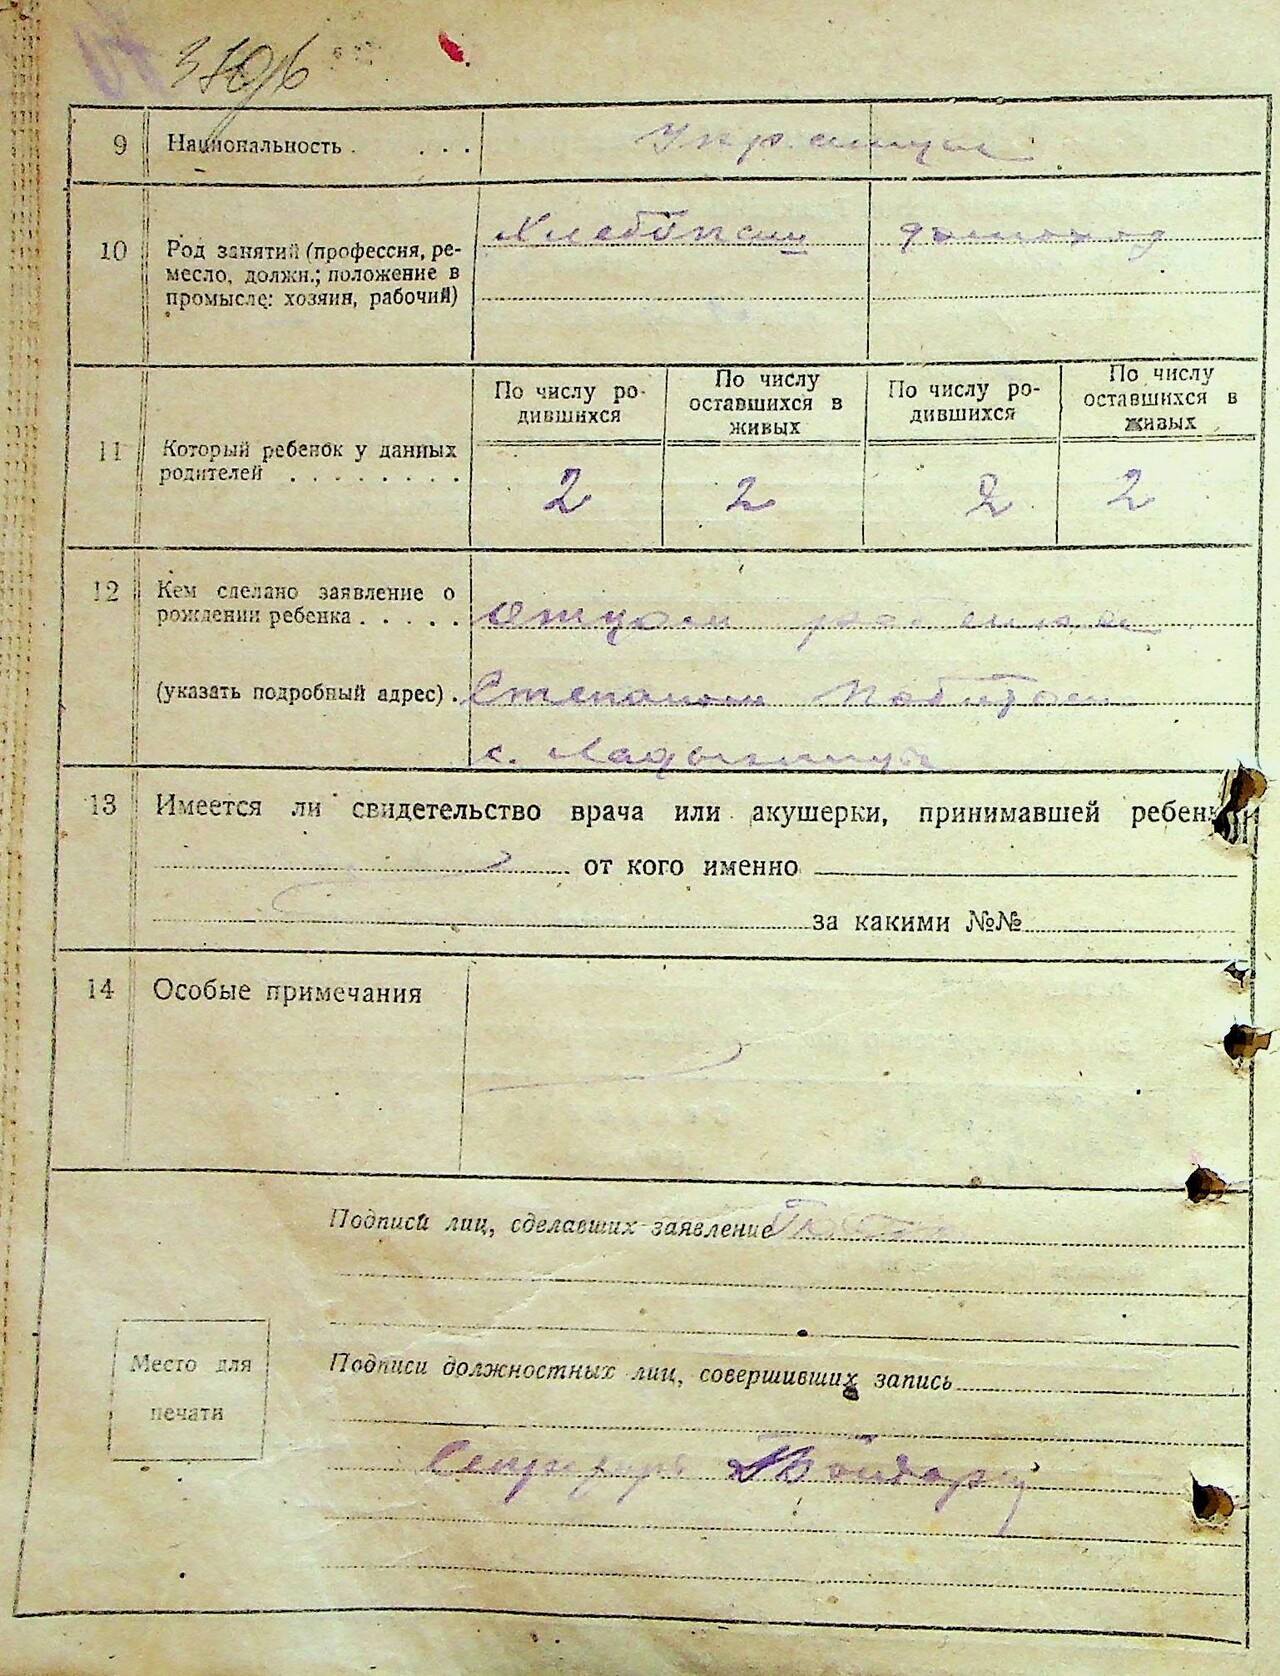 9 Национальность . . . . Украинцы
10 Род занятий (профессия, ре-
месло, должн.; положение в
промысле: хозяин, рабочий)
Хлебопашец домоход
11 Который ребенок у данных
родителей . . . . . . . .
По числу ро-
дившихся
По числу
оставшихся в
живых
По числу ро-
дившихся
По числу
оставшихся в
живых
2 2 2 2
12 Кем сделано заявление о
рождении ребенка . . . . .
Отцом ребенка
(указать подробный адрес) .
Степаном
с.
13 Имеется ли свидетельство врача или акушерки, принимавшей ребен
от кого именно
за какими №№
14 Особые примечания
Подписи лиц, сделавших заявление
Место для
печати
Подписи должностных лиц, совершивших запись
Секретарь